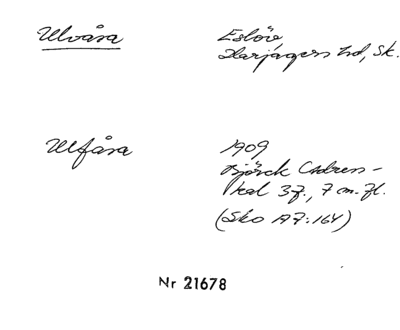 Ulvåsa
Eslöv
Harjagers hd, Sk.
Ulfåsa
1909
Björck Adress-
kal 3f., 7 m. fl.
(Sko A7:164)
Nr 21678